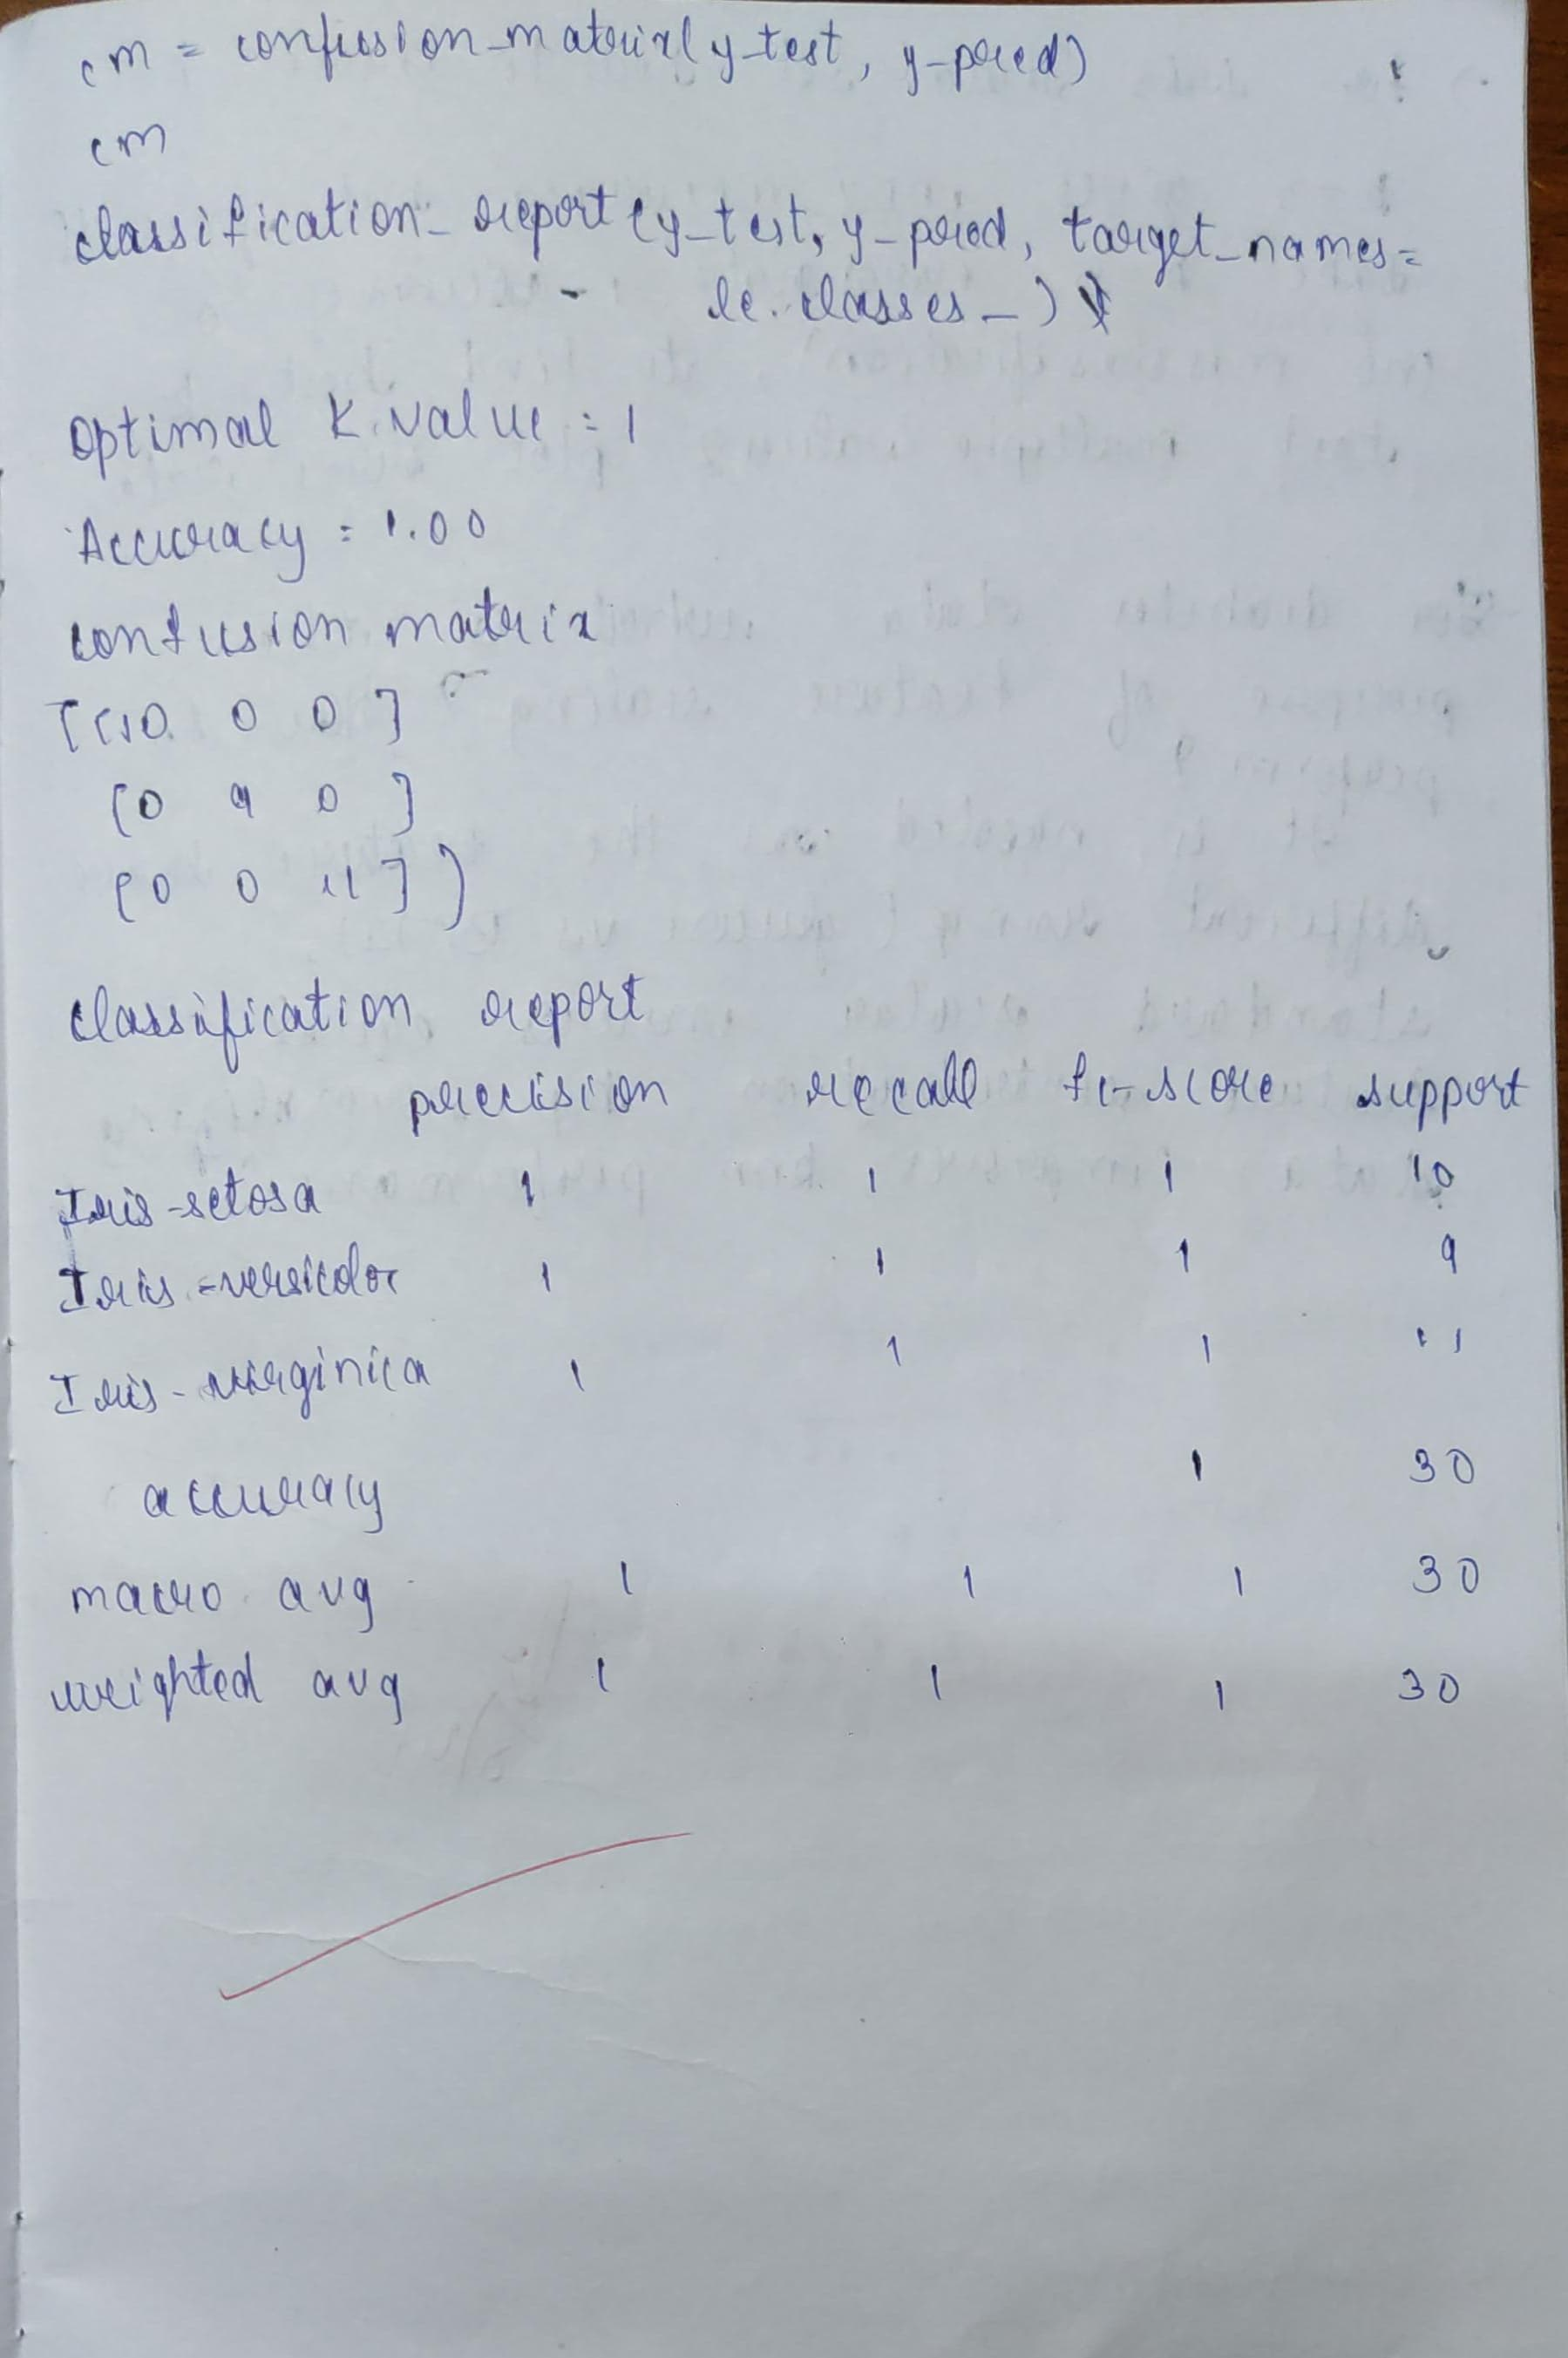 cm = confusion_matrix(y_test, y_pred)
cm
classification_report(y_test, y_pred, target_names=
le.classes_)
Optimal K value = 1
Accuracy = 1.00
confusion matrix
[[10 0 0]
[0 9 0]
[0 0 11]]
classification report
precision recall f1-score support
Iris-setosa 1 1 1 10
Iris-versicolor 1 1 1 9
Iris-virginica 1 1 1 11
accuracy 1 30
macro avg 1 1 1 30
weighted avg 1 1 1 30